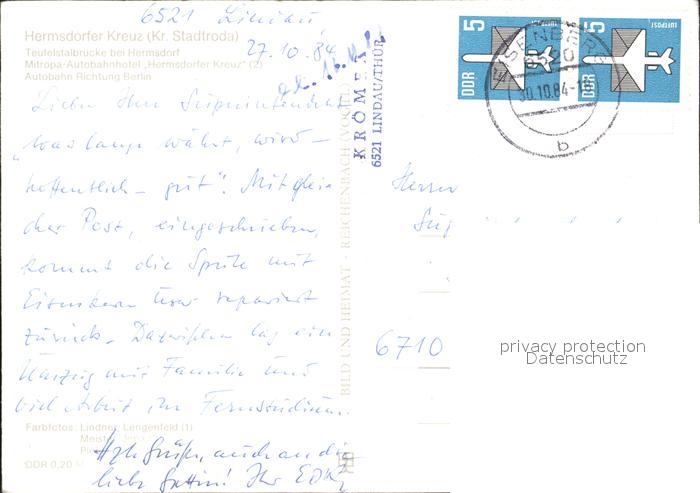 6521 Lindau
27.10.84
Hermsdorfer Kreuz (Kr. Stadtroda)
Teufelstalbrücke bei Hermsdorf
Mitropa-Autobahnhotel „Hermsdorfer Kreuz" (2)
Autobahn Richtung Berlin
Lieber Herr Superintendent
„was lange währt, wird –
hoffentlich – gut". Mit glei-
cher Post, eingeschrieben,
kommt die Spule mit
Eisenkern repariert
zurück. Dazwischen lag ein
Umzug mit Familie und
viel Arbeit im Fernstudium.
Grüße, auch an die
liebe Gattin! Ihr
Farbfotos: Lindner, Lengenfeld (1)
DDR 0,20
BILD UND HEIMAT · REICHENBACH (VOGTL)
KRÖMER
6521 LINDAU/THÜR.
DDR 5 LUFTPOST
DDR 5 LUFTPOST
EISENBERG
6520
30.10.84
b
Herrn
Sup
6710
privacy protection
Datenschutz